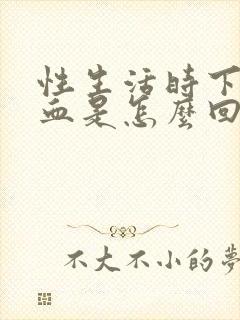 性生活時下
血是怎麼回
不大不小的夢